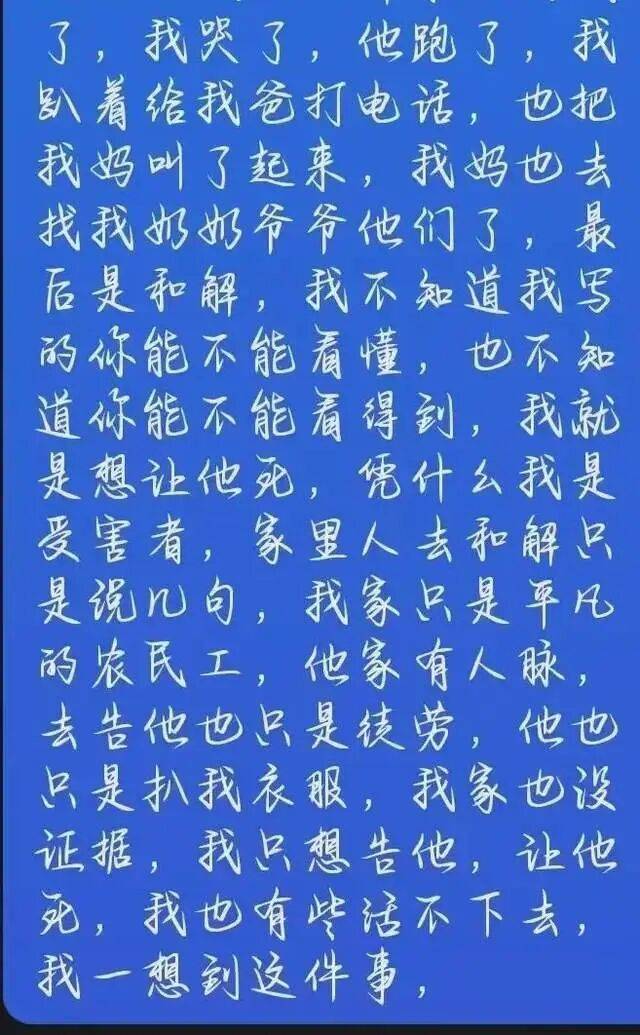 了，我哭了，他跑了，我
趴着给我爸打电话，也把
我妈叫了起来，我妈也去
找我奶奶爷爷他们了，最
后是和解，我不知道我写
的你能不能看懂，也不知
道你能不能看得到，我就
是想让他死，凭什么我是
受害者，家里人去和解只
是说几句，我家只是平凡
的农民工，他家有人脉，
去告他也只是徒劳，他也
只是扒我衣服，我家也没
证据，我只想告他，让他
死，我也有些活不下去，
我一想到这件事，